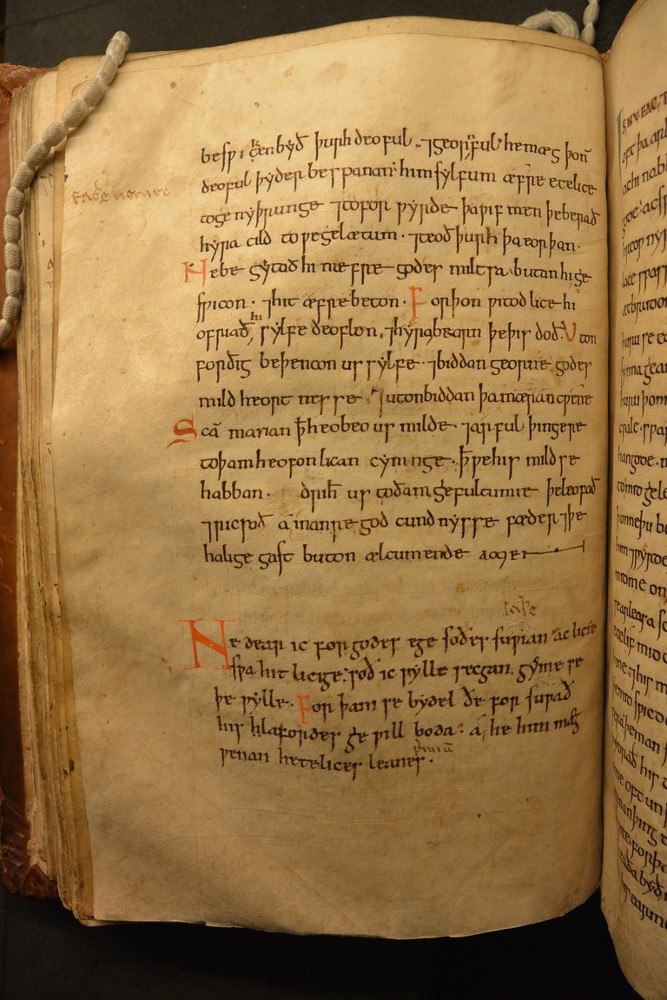 beswicen byð þurh deoful. ⁊ georwful he mæg þoñ
deoful þyder bespanan him sylfum æfre ecelice
to genyþrunge ⁊ tofor wyrde þa wifmen þe berað
hyra cild to wegelætum. ⁊ teoð þurh þa eorþan.
Ne begytað hi næfre godes miltsa butan hi ge
swicon. ⁊ hit æfre beton. Forþon witodlice hi
offriað hi sylfe deoflon. ⁊ hyra bearn þe þis doð. Uton
forðig beþencon us sylfe. ⁊ biddan georne godes
mildheortnesse. ⁊ uton biddan þa mæran cwene
Sc̄a marian ꝥ heo beo us milde. ⁊ arful þingere
to þam heofonlican cyninge. ꝥ we his mildse
habban. drih̄ us to ðam gefultume þe leofað
⁊ ricsoð a in anre godcundnysse fæder ⁊ þe
halige gast buton ælcum ende amen
Ne dear ic for godes ege soðes suwian ac licie
swa hit licige: soð ic wylle secgan. gyme se
þe wylle. For þam se bydel ðe forsuwað
his hlafordes gewill boda: a, he him mæg
wenan hetelices leanes.